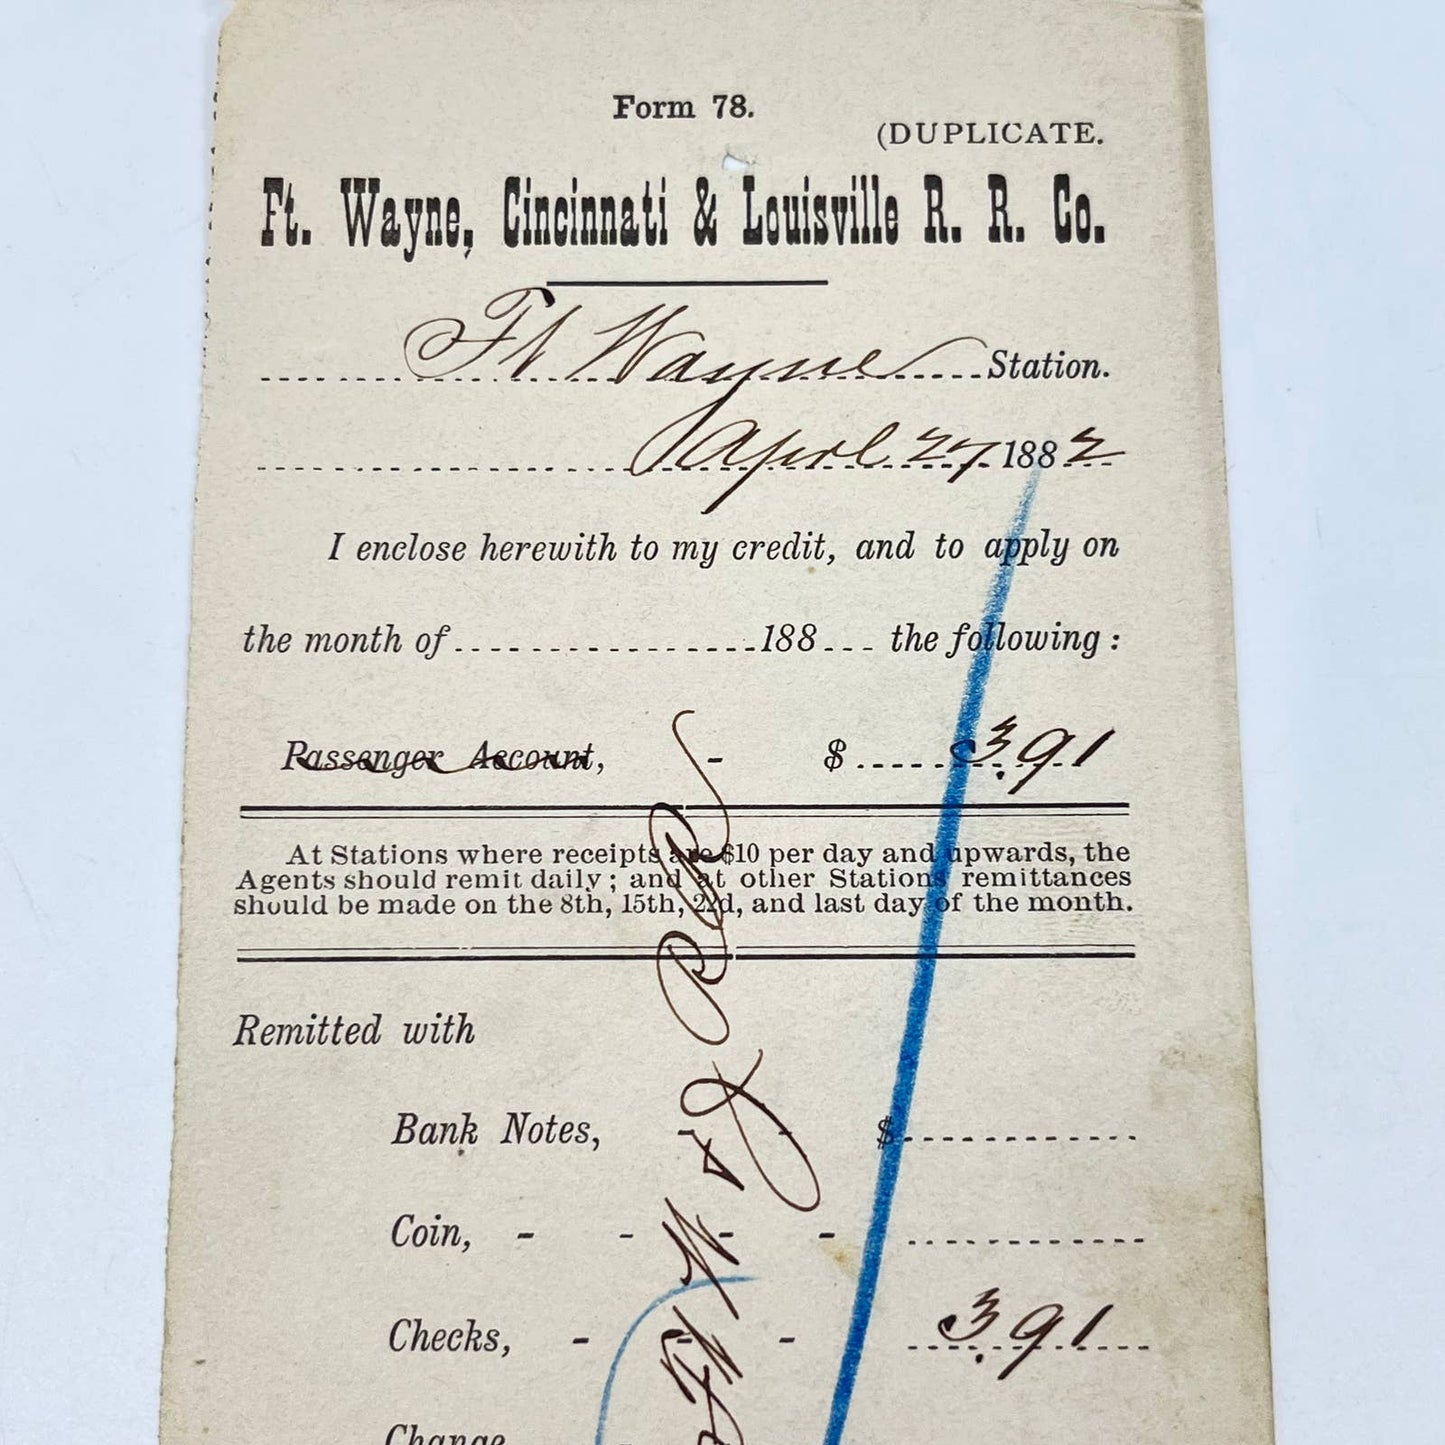 Form 78.
(DUPLICATE.
Ft. Wayne, Cincinnati & Louisville R. R. Co.
Ft Wayne Station.
April 27 1882
I enclose herewith to my credit, and to apply on
the month of 188 the following:
Passenger Account, - $ 3.91
At Stations where receipts are $10 per day and upwards, the
Agents should remit daily; and at other Stations remittances
should be made on the 8th, 15th, 22d, and last day of the month.
Remitted with
Bank Notes, - - $
Coin, - - - -
Checks, - - - 3.91
Change
Ft W & J RR